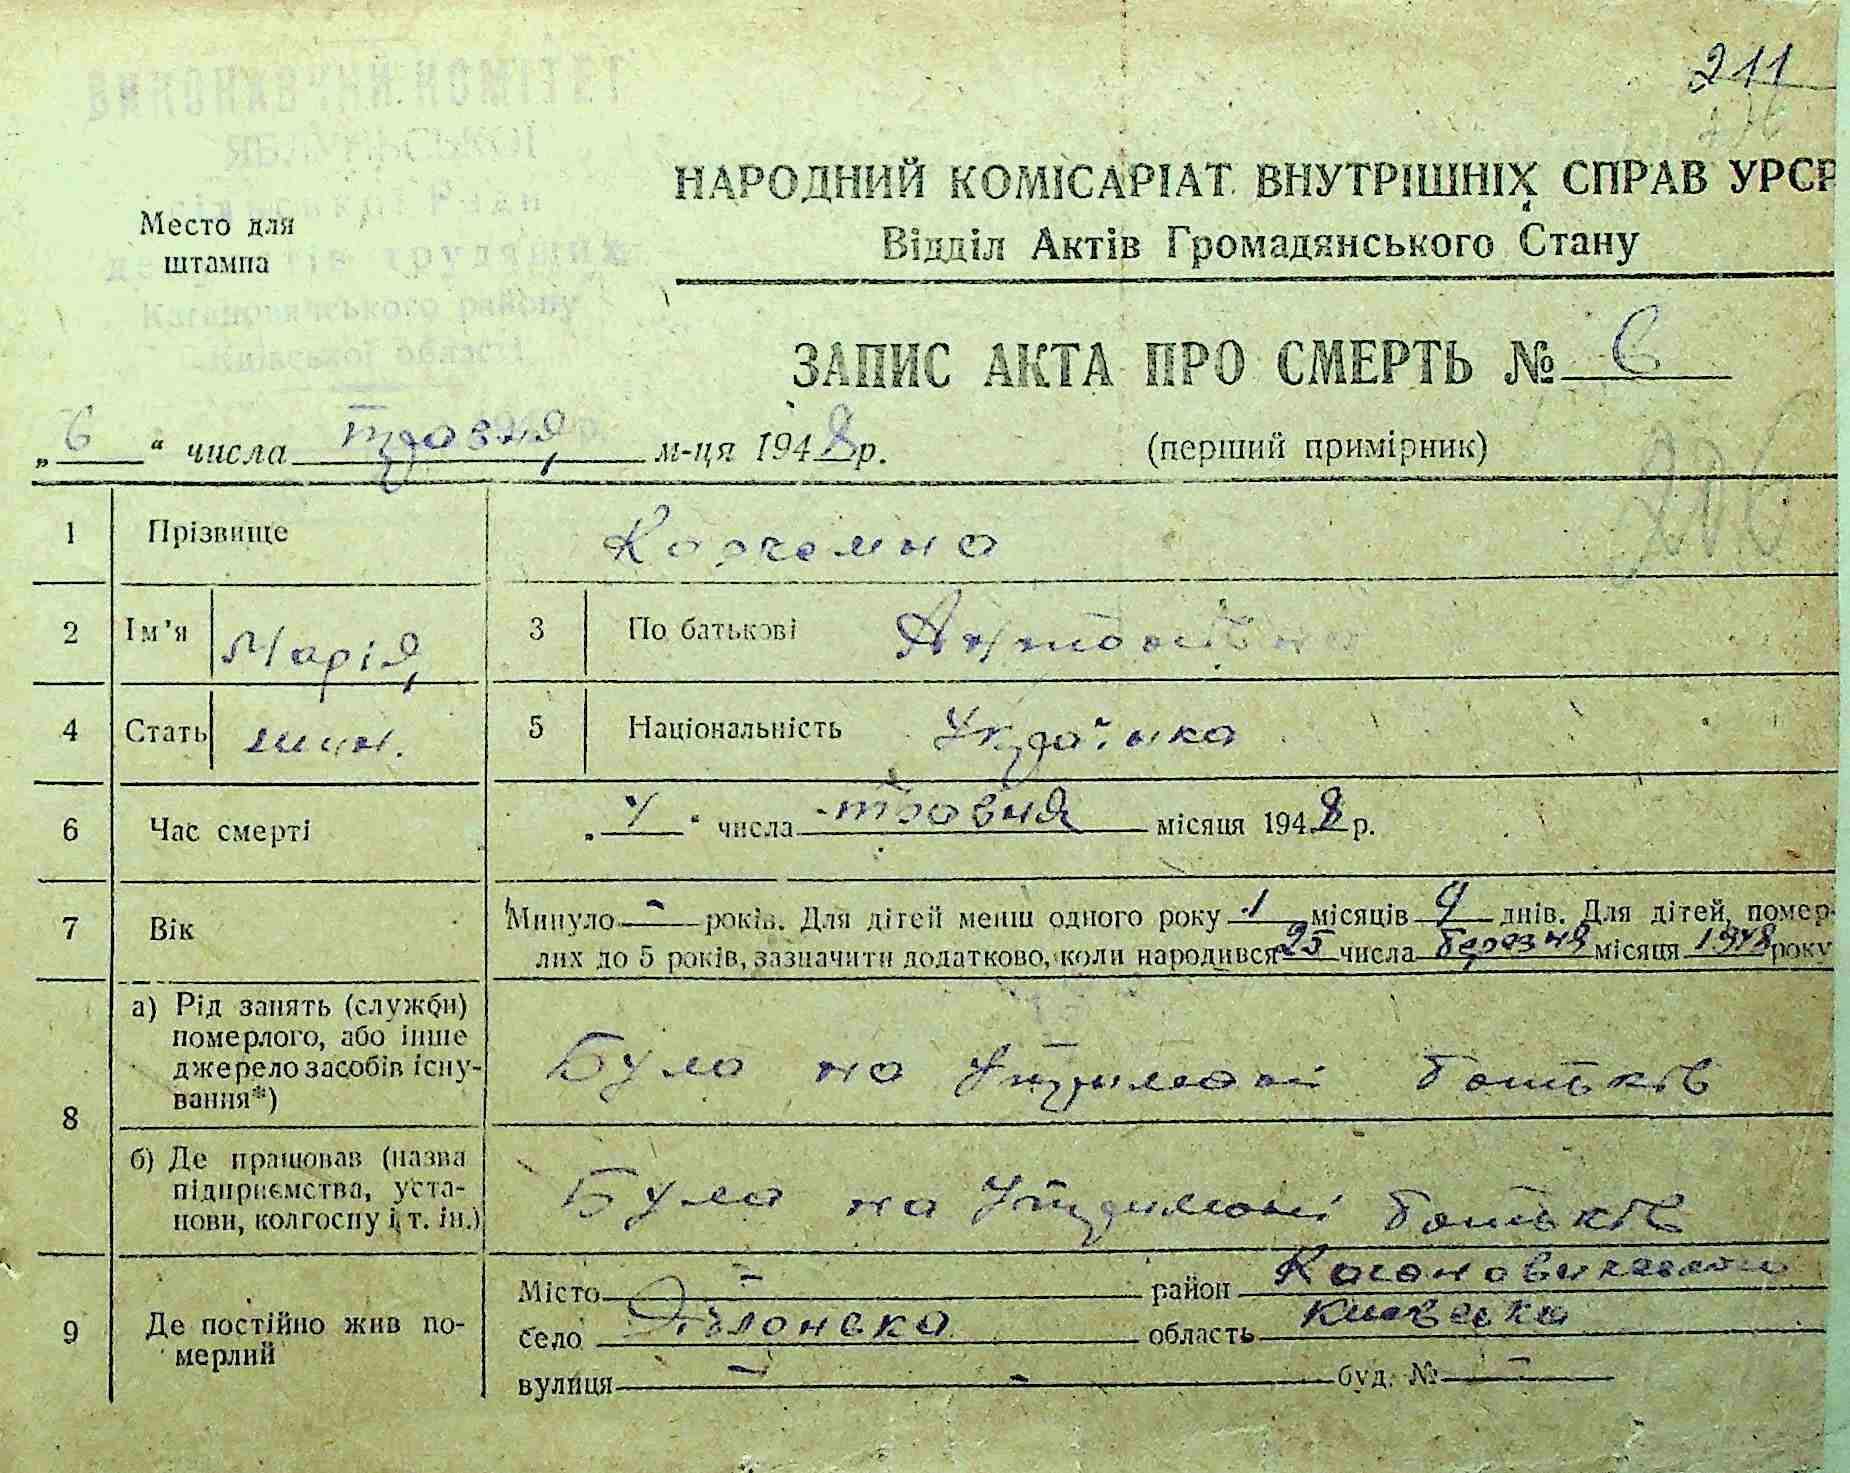 211
ВИКОНАВЧИЙ КОМІТЕТ
НАРОДНИЙ КОМІСАРІАТ ВНУТРІШНІХ СПРАВ УРСР
Відділ Актів Громадянського Стану
Место для
штампа
Кагановичського району
Київської області
ЗАПИС АКТА ПРО СМЕРТЬ № 6
„ 6 “ числа травня м-ця 1948 р.
(перший примірник)
1 Прізвище Корчемна
2 Ім'я Марія 3 По батькові Антонівна
4 Стать жін. 5 Національність Українка
6 Час смерті „ 4 “ числа травня місяця 1948 р.
7 Вік Минуло - років. Для дітей менш одного року 1 місяців 9 днів. Для дітей, помер-
лих до 5 років, зазначити додатково, коли народився 25 числа березня місяця 1948 року
8 а) Рід занять (служби)
померлого, або інше
джерело засобів існу-
вання*)
Була на Утриманні батьків
б) Де працював (назва
підприємства, уста-
нови, колгоспу і т. ін.)
Була на Утриманні батьків
9 Де постійно жив по-
мерлий
Місто - район
село область Київська
вулиця - - буд. № -